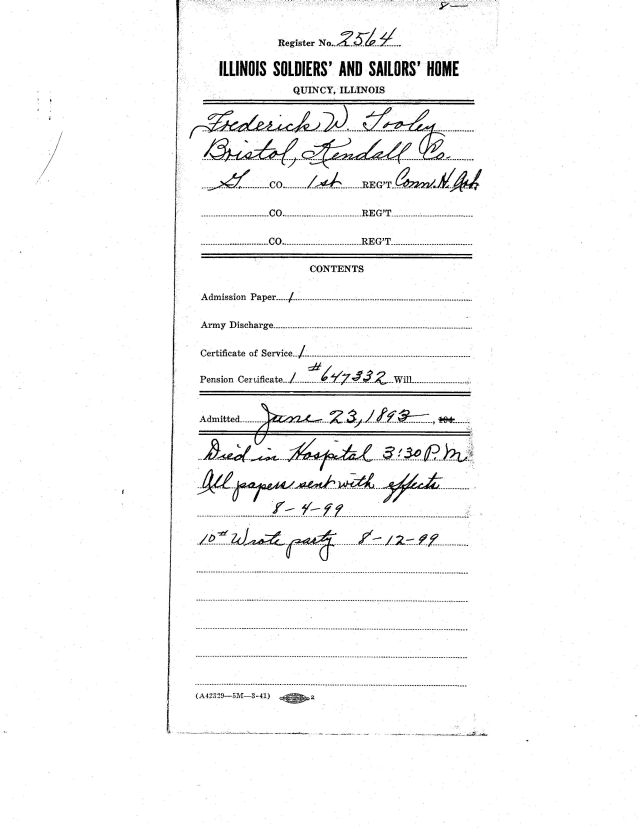 8—
Register No. 2564
ILLINOIS SOLDIERS' AND SAILORS' HOME
QUINCY, ILLINOIS
Frederick W. Tooley
Bristol, Kendall Co.
G. CO. 1st REG'T Conn. H. Art.
CO. REG'T
CO. REG'T
CONTENTS
Admission Paper 1
Army Discharge
Certificate of Service 1
Pension Certificate 1 #647332 Will
Admitted June 23, 1893, 194
Died in Hospital 3:30 P.M.
All papers sent with effects
8-4-99
10# Wrote party 8-12-99
(A42329—5M—3-41) 2